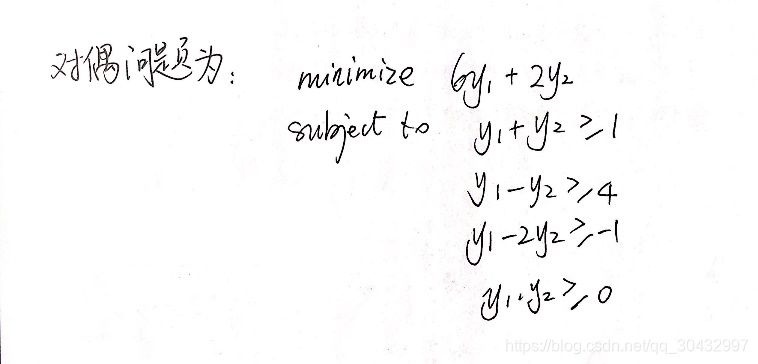 对偶问题为: minimize 6y₁ + 2y₂
subject to y₁+y₂ ≥ 1
y₁-y₂ ≥ 4
y₁-2y₂ ≥ -1
y₁.y₂ ≥ 0
https://blog.csdn.net/qq_30432997